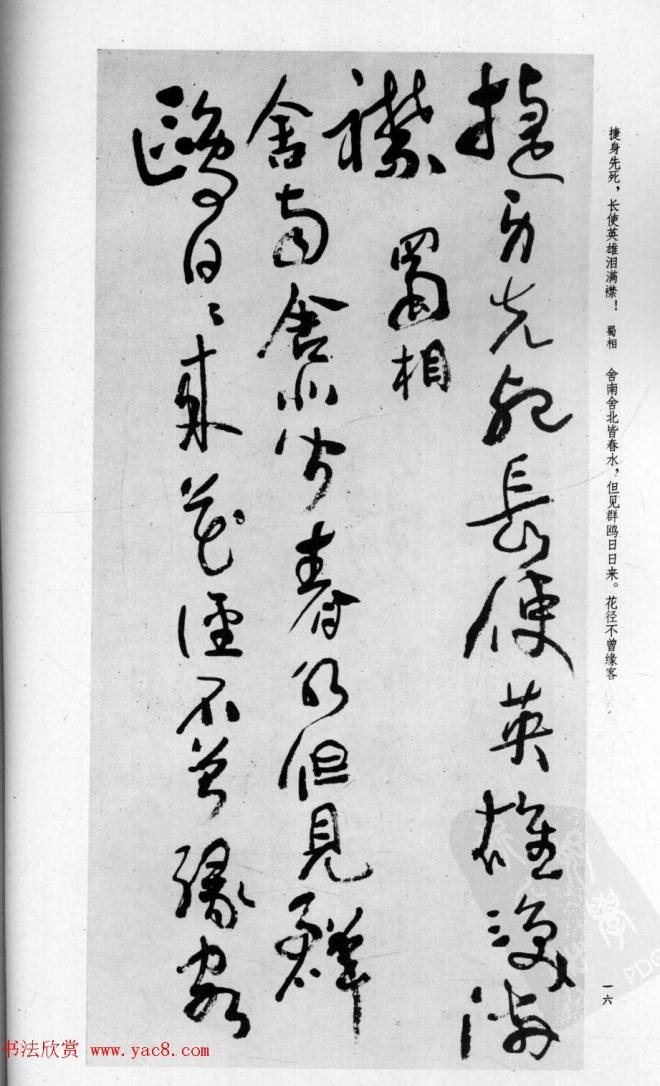 捷身先死，长使英雄泪满襟！ 蜀相 舍南舍北皆春水，但见群鸥日日来。花径不曾缘客
捷身先死長使英雄淚滿
襟 蜀相
舍南舍北皆春水但見群
鷗日〻來花徑不曾緣客
一六
书法欣赏 www.yac8.com